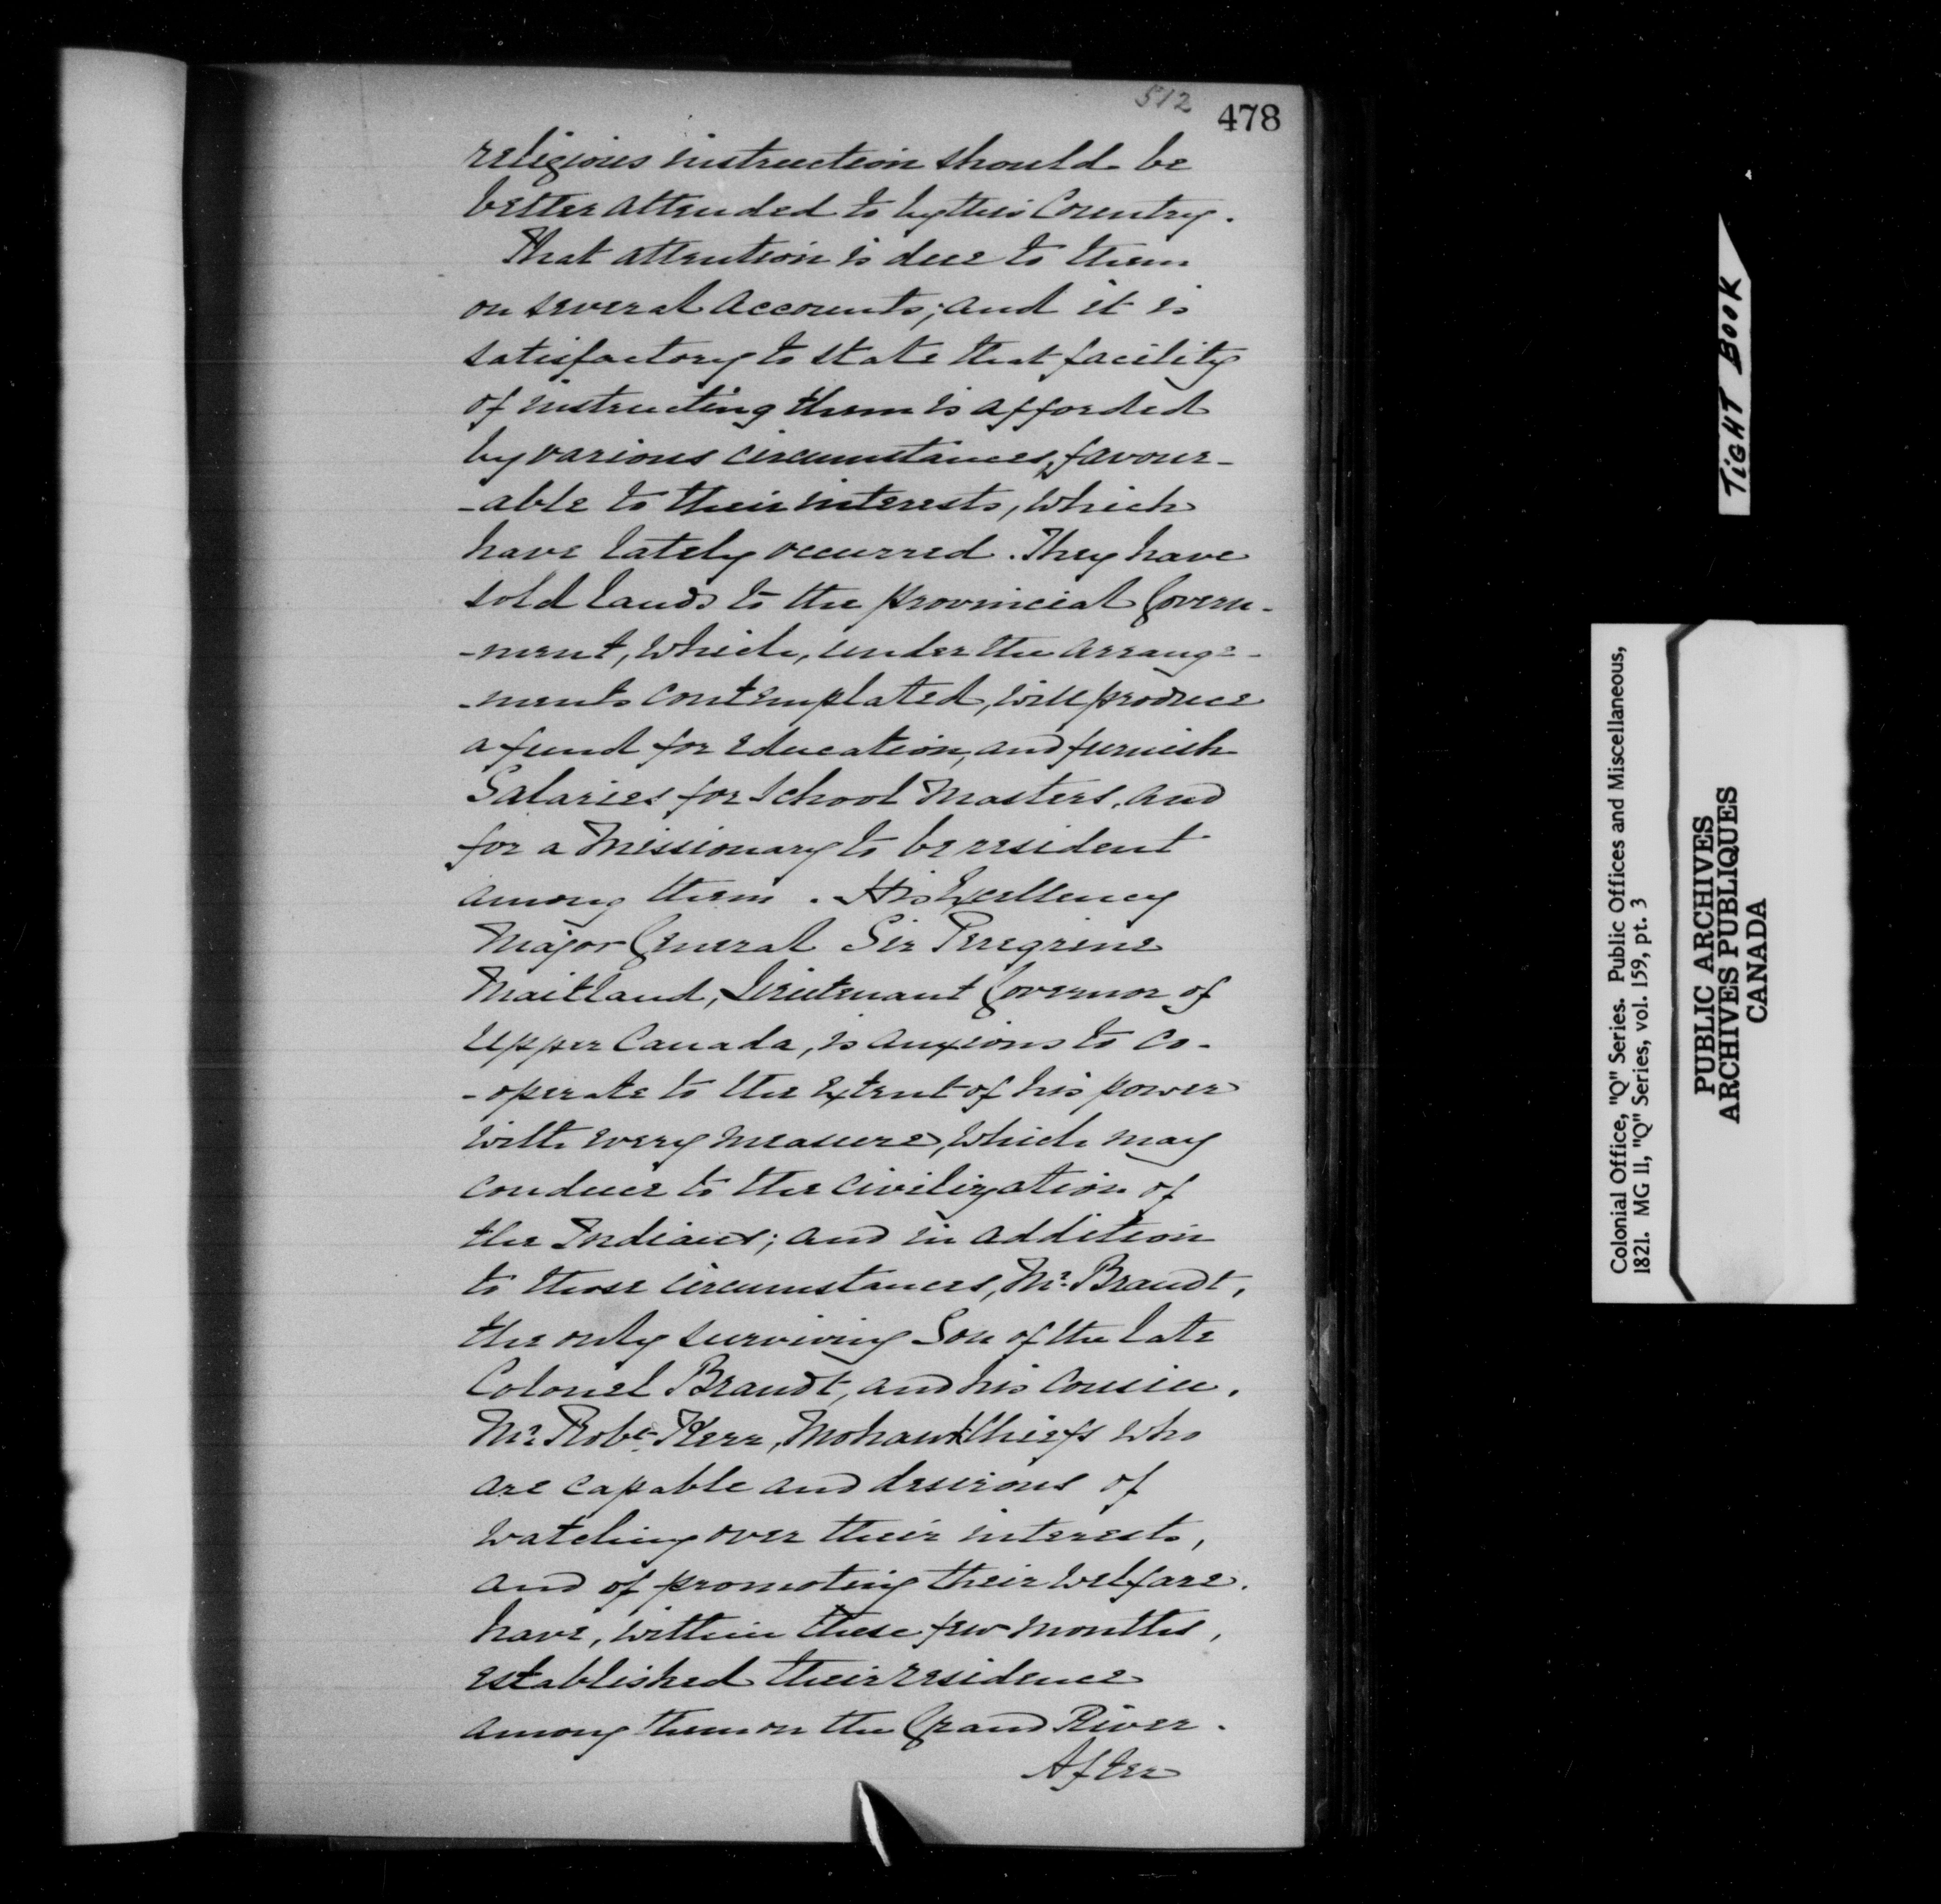 512
478
religious instruction should be
better attended to by this Country.
That attention is due to them
on several accounts; and it is
satisfactory to state that facility
of instructing them is afforded
by various circumstances, favour-
-able to their interests, which
have lately occurred. They have
sold lands to the provincial Govern-
-ment, which, under the arrange-
-ments contemplated, will produce
a fund for education, and furnish
Salaries for School Masters, and
for a Missionary to be resident
among them. His Excellency
Major General Sir Peregrine
Maitland, Lieutenant Governor of
Upper Canada, is anxious to co-
-operate to the extent of his power
with every measure, which may
conduce to the civilization of
the Indians; and in addition
to those circumstances, Mr. Brandt,
the only surviving Son of the late
Colonel Brandt, and his cousin,
Mr. Robt. Kerr, Mohawk Chiefs who
are capable and desirous of
watching over their interests,
and of promoting their welfare,
have, within these few months,
established their residence
among them on the Grand River.
After
TIGHT BOOK
Colonial Office, "Q" Series. Public Offices and Miscellaneous,
1821. MG 11, "Q" Series, vol. 159, pt. 3
PUBLIC ARCHIVES
ARCHIVES PUBLIQUES
CANADA